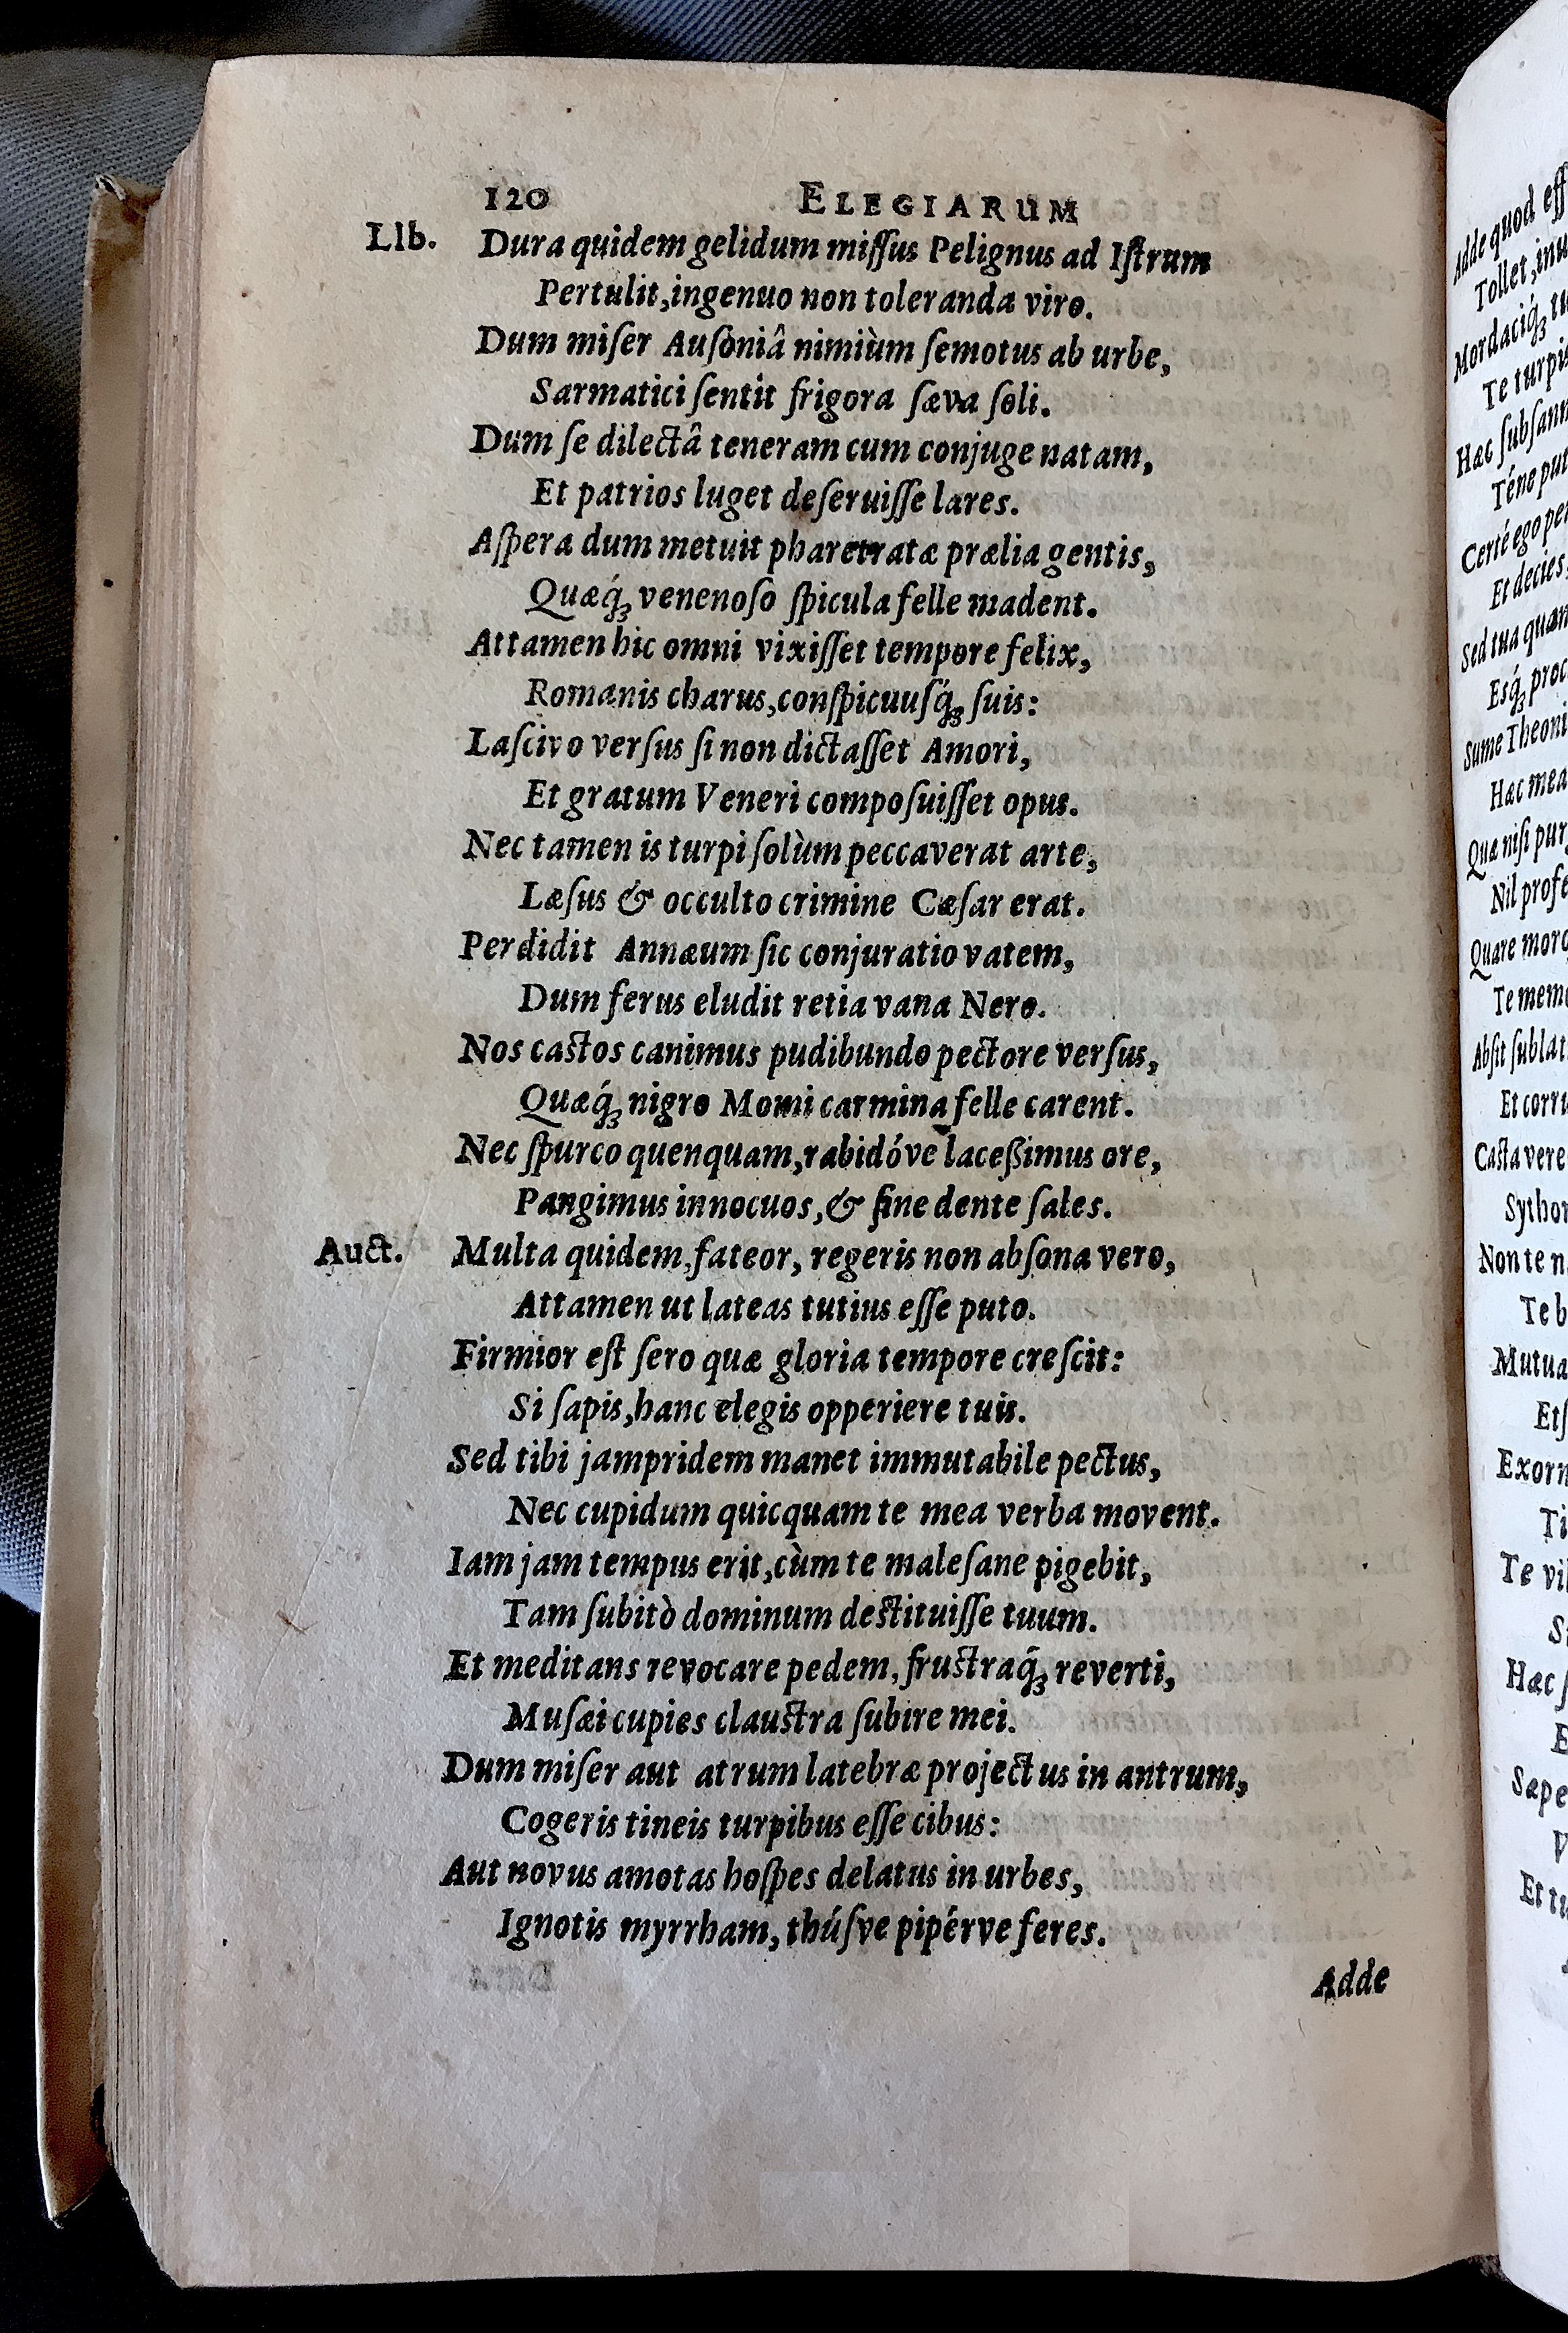 120 ELEGIARUM
LIb. Dura quidem gelidum miſſus Pelignus ad Iſtrum
Pertulit, ingenuo non toleranda viro.
Dum miſer Auſoniâ nimiùm ſemotus ab urbe,
Sarmatici ſentit frigora ſæva ſoli.
Dum ſe dilectâ teneram cum conjuge natam,
Et patrios luget deſeruiſſe lares.
Aſpera dum metuit pharetratæ prælia gentis,
Quæq́ꝫ venenoſo ſpicula felle madent.
Attamen hic omni vixiſſet tempore felix,
Romanis charus, conſpicuuſq́ꝫ ſuis:
Laſcivo verſus ſi non dictaſſet Amori,
Et gratum Veneri compoſuiſſet opus.
Nec tamen is turpi ſolùm peccaverat arte,
Læſus & occulto crimine Cæſar erat.
Perdidit Annæum ſic conjuratio vatem,
Dum ferus eludit retia vana Nero.
Nos caſtos canimus pudibundo pectore verſus,
Quæq́ꝫ nigro Momi carmina felle carent.
Nec ſpurco quenquam, rabidóve laceßimus ore,
Pangimus innocuos, & ſine dente ſales.
Auct. Multa quidem, fateor, regeris non abſona vero,
Attamen ut lateas tutius eſſe puto.
Firmior eſt ſero quæ gloria tempore creſcit:
Si ſapis, hanc elegis opperiere tuis.
Sed tibi jampridem manet immutabile pectus,
Nec cupidum quicquam te mea verba movent.
Iam jam tempus erit, cùm te maleſane pigebit,
Tam ſubitò dominum deſtituiſſe tuum.
Et meditans revocare pedem, fruſtraq́ꝫ reverti,
Muſæi cupies clauſtra ſubire mei.
Dum miſer aut atrum latebræ projectus in antrum,
Cogeris tineis turpibus eſſe cibus:
Aut novus amotas hoſpes delatus in urbes,
Ignotis myrrham, thúſve pipérve feres.
Adde
Adde quod eſſ
Tollet, inu
Mordaciq́ꝫ tu
Te turpis
Hæc ſubſann
Téne put
Certé ego per
Et decies
Sed tua quam
Esq́ꝫ proc
Sume Theoni
Hæc mea
Quæ niſi pur
Nil profe
Quare mord
Te memo
Abſit ſublat
Et corru
Caſta vere
Sython
Non te n
Te b
Mutua
Et ſ
Exorn
Ti
Te vil
S
Hæc ſ
E
Sæpe
V
Et tu